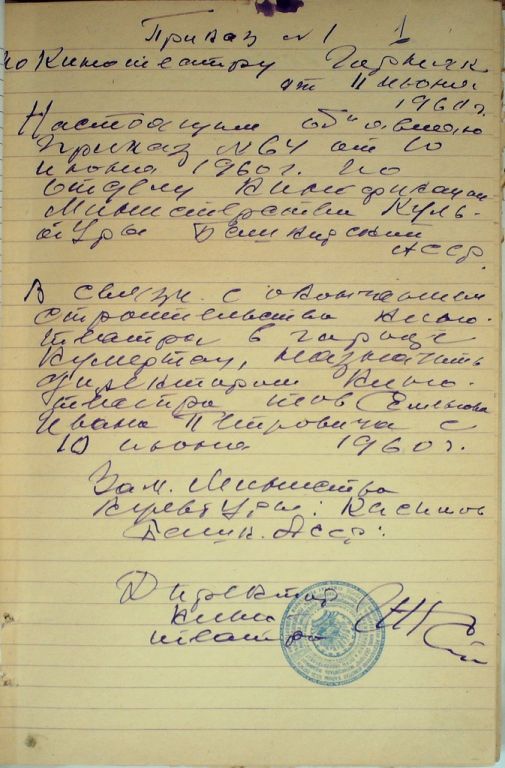 Приказ № 1 1
по Кинотеатру Горняк
от 11 июня
1960г.
Настоящим об"являю
Приказ № 64 от 10
июня 1960г. по
отделу Кинофикации
Министерства Куль-
туры Башкирской
АССР.
В связи с окончанием
строительства кино-
театра в городе
Кумертау, назначить
директором Кино-
театра тов
Ивана Петровича с
10 июня 1960г.
Зам. Министра
Культуры: Касимов
Башк. АССР:
Директор
кино
театра